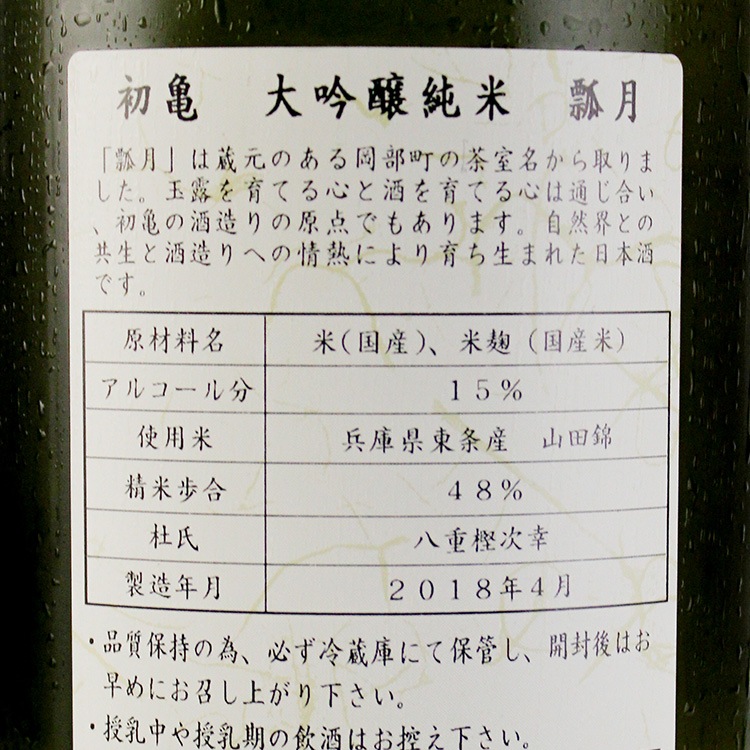 初亀　大吟醸純米　瓢月
「瓢月」は蔵元のある岡部町の茶室名から取りま
した。玉露を育てる心と酒を育てる心は通じ合い
、初亀の酒造りの原点でもあります。自然界との
共生と酒造りへの情熱により育ち生まれた日本酒
です。
原材料名　米(国産)、米麹（国産米）
アルコール分　１５％
使用米　兵庫県東条産　山田錦
精米歩合　４８％
杜氏　八重樫次幸
製造年月　２０１８年４月
・品質保持の為、必ず冷蔵庫にて保管し、開封後はお
早めにお召し上がり下さい。
・授乳中や授乳期の飲酒はお控え下さい。